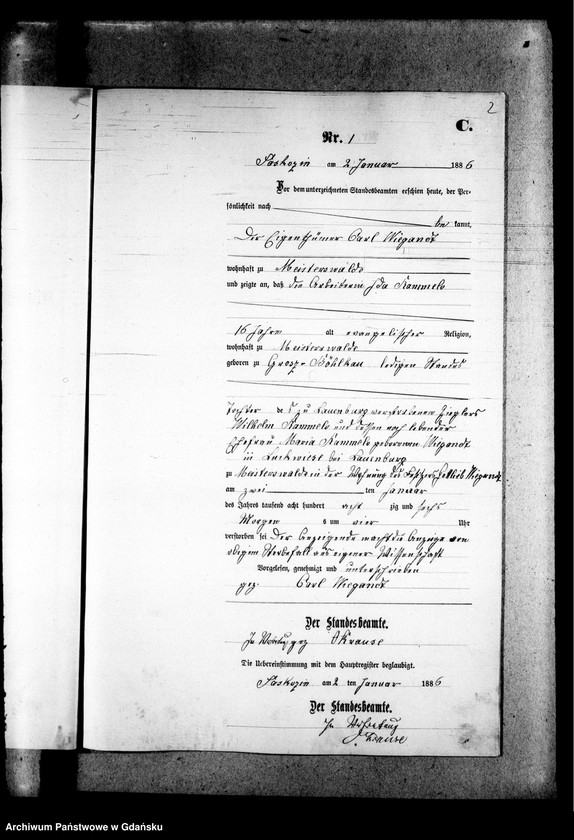 2
C.
Nr. 1
Saskozin am 2 Januar 1886
Vor dem unterzeichneten Standesbeamten erschien heute, der Per-
sönlichkeit nach
be kannt,
Der Eigenthümer Carl Wiegandt
wohnhaft zu Meisterswalde
und zeigte an, daß die Arbeiterin Ida Kammels
16 Jahren alt evangelischer Religion,
wohnhaft zu Meisterswalde
geboren zu Grosz-Böhlkau ledigen Standes
Tochter des zu Lauenburg verstorbenen Zieglers
Wilhelm Kammels und dessen noch lebender
Ehefrau Maria Kammels geborenen Wiegandt
in Luckwiese bei Lauenburg
zu Meisterswalde in der Wohnung des Wiegandt
am zwei ten Januar
des Jahrs tausend acht hundert acht zig und sechs
Morgens um vier Uhr
verstorben sei Der Anzeigende macht die Anzeige von
obigem Sterbefall aus eigener Wissenschaft
Vorgelesen, genehmigt und unterschrieben
gez. Carl Wiegandt
Der Standesbeamte.
In Vertretung gez Krause
Die Uebereinstimmung mit dem Hauptregister beglaubigt.
Saskozin am 2 ten Januar 1886
Der Standesbeamte.
In Vertretung
Krause
Archiwum Państwowe w Gdańsku